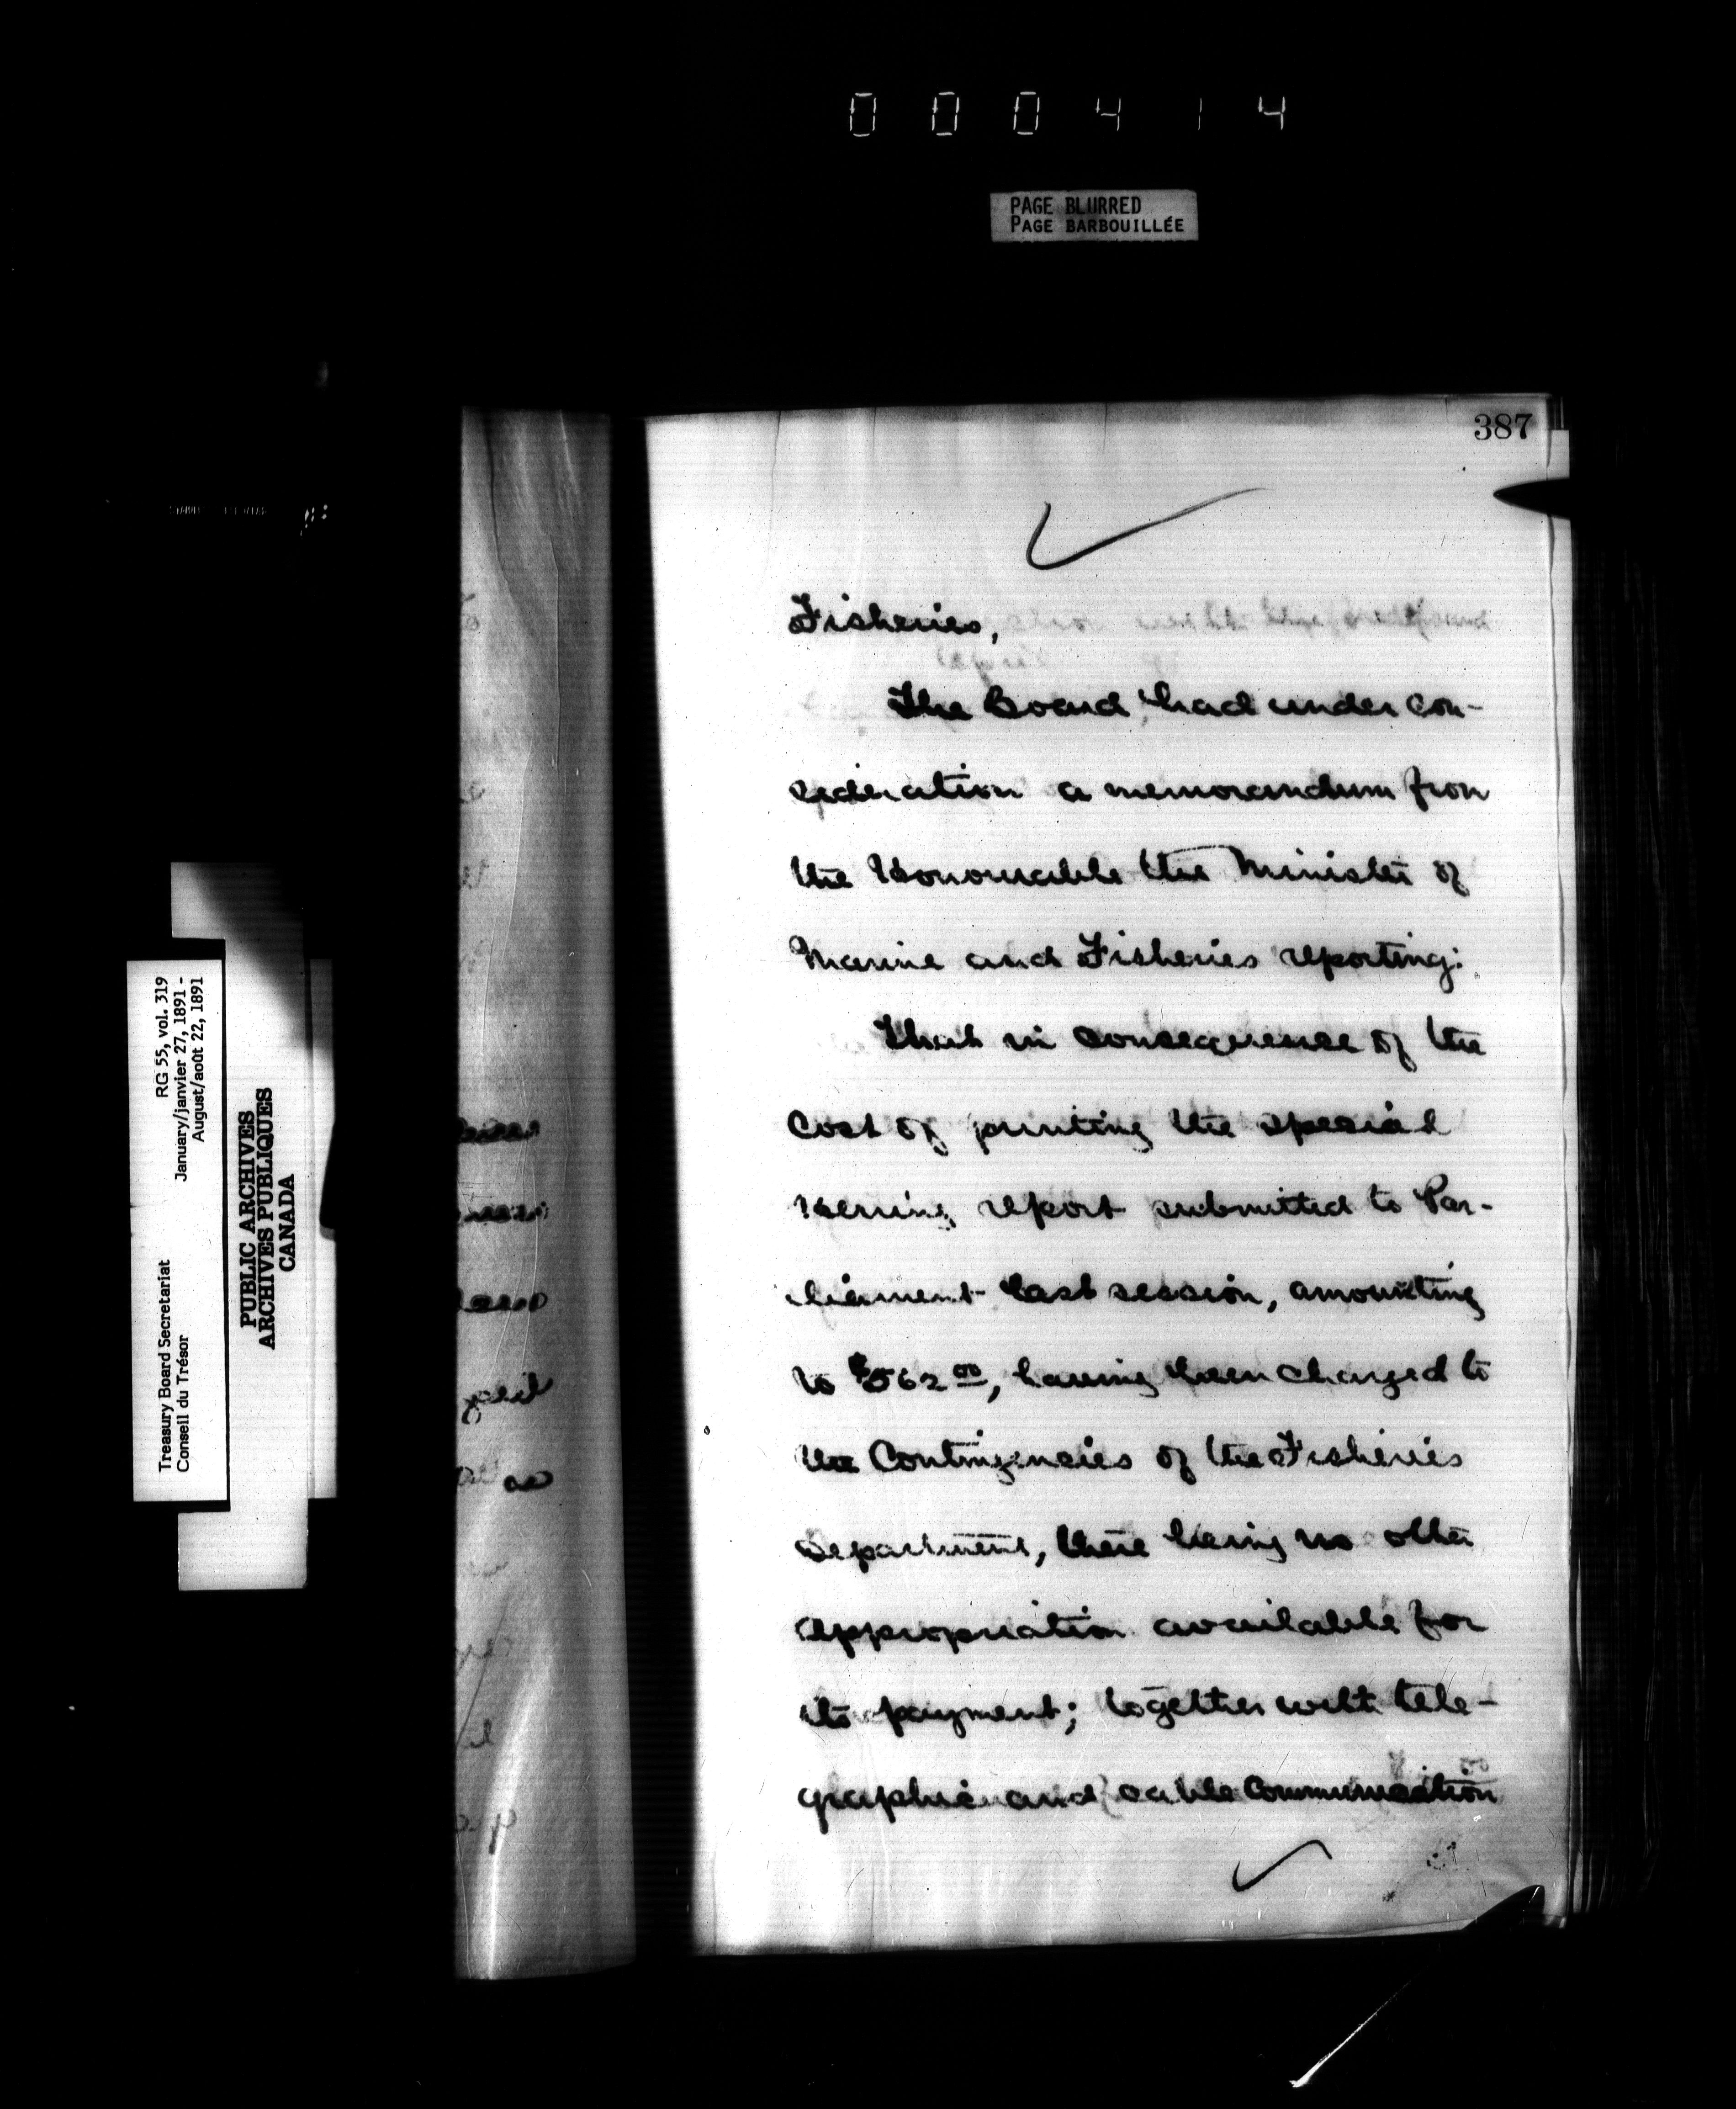 000414
PAGE BLURRED
PAGE BARBOUILLÉE
387
Fisheries,
The Board had under con-
sideration a memorandum from
the Honourable the Minister of
Marine and Fisheries reporting:
That in consequence of the
cost of printing the special
Herring report submitted to Par-
liament last session, amounting
to $562 00, having been charged to
the Contingencies of the Fisheries
Department, there being no other
appropriation available for
its payment; together with tele-
graphic and cable communication
Treasury Board Secretariat RG 55, vol. 319
Conseil du Trésor January/janvier 27, 1891 -
August/août 22, 1891
PUBLIC ARCHIVES
ARCHIVES PUBLIQUES
CANADA